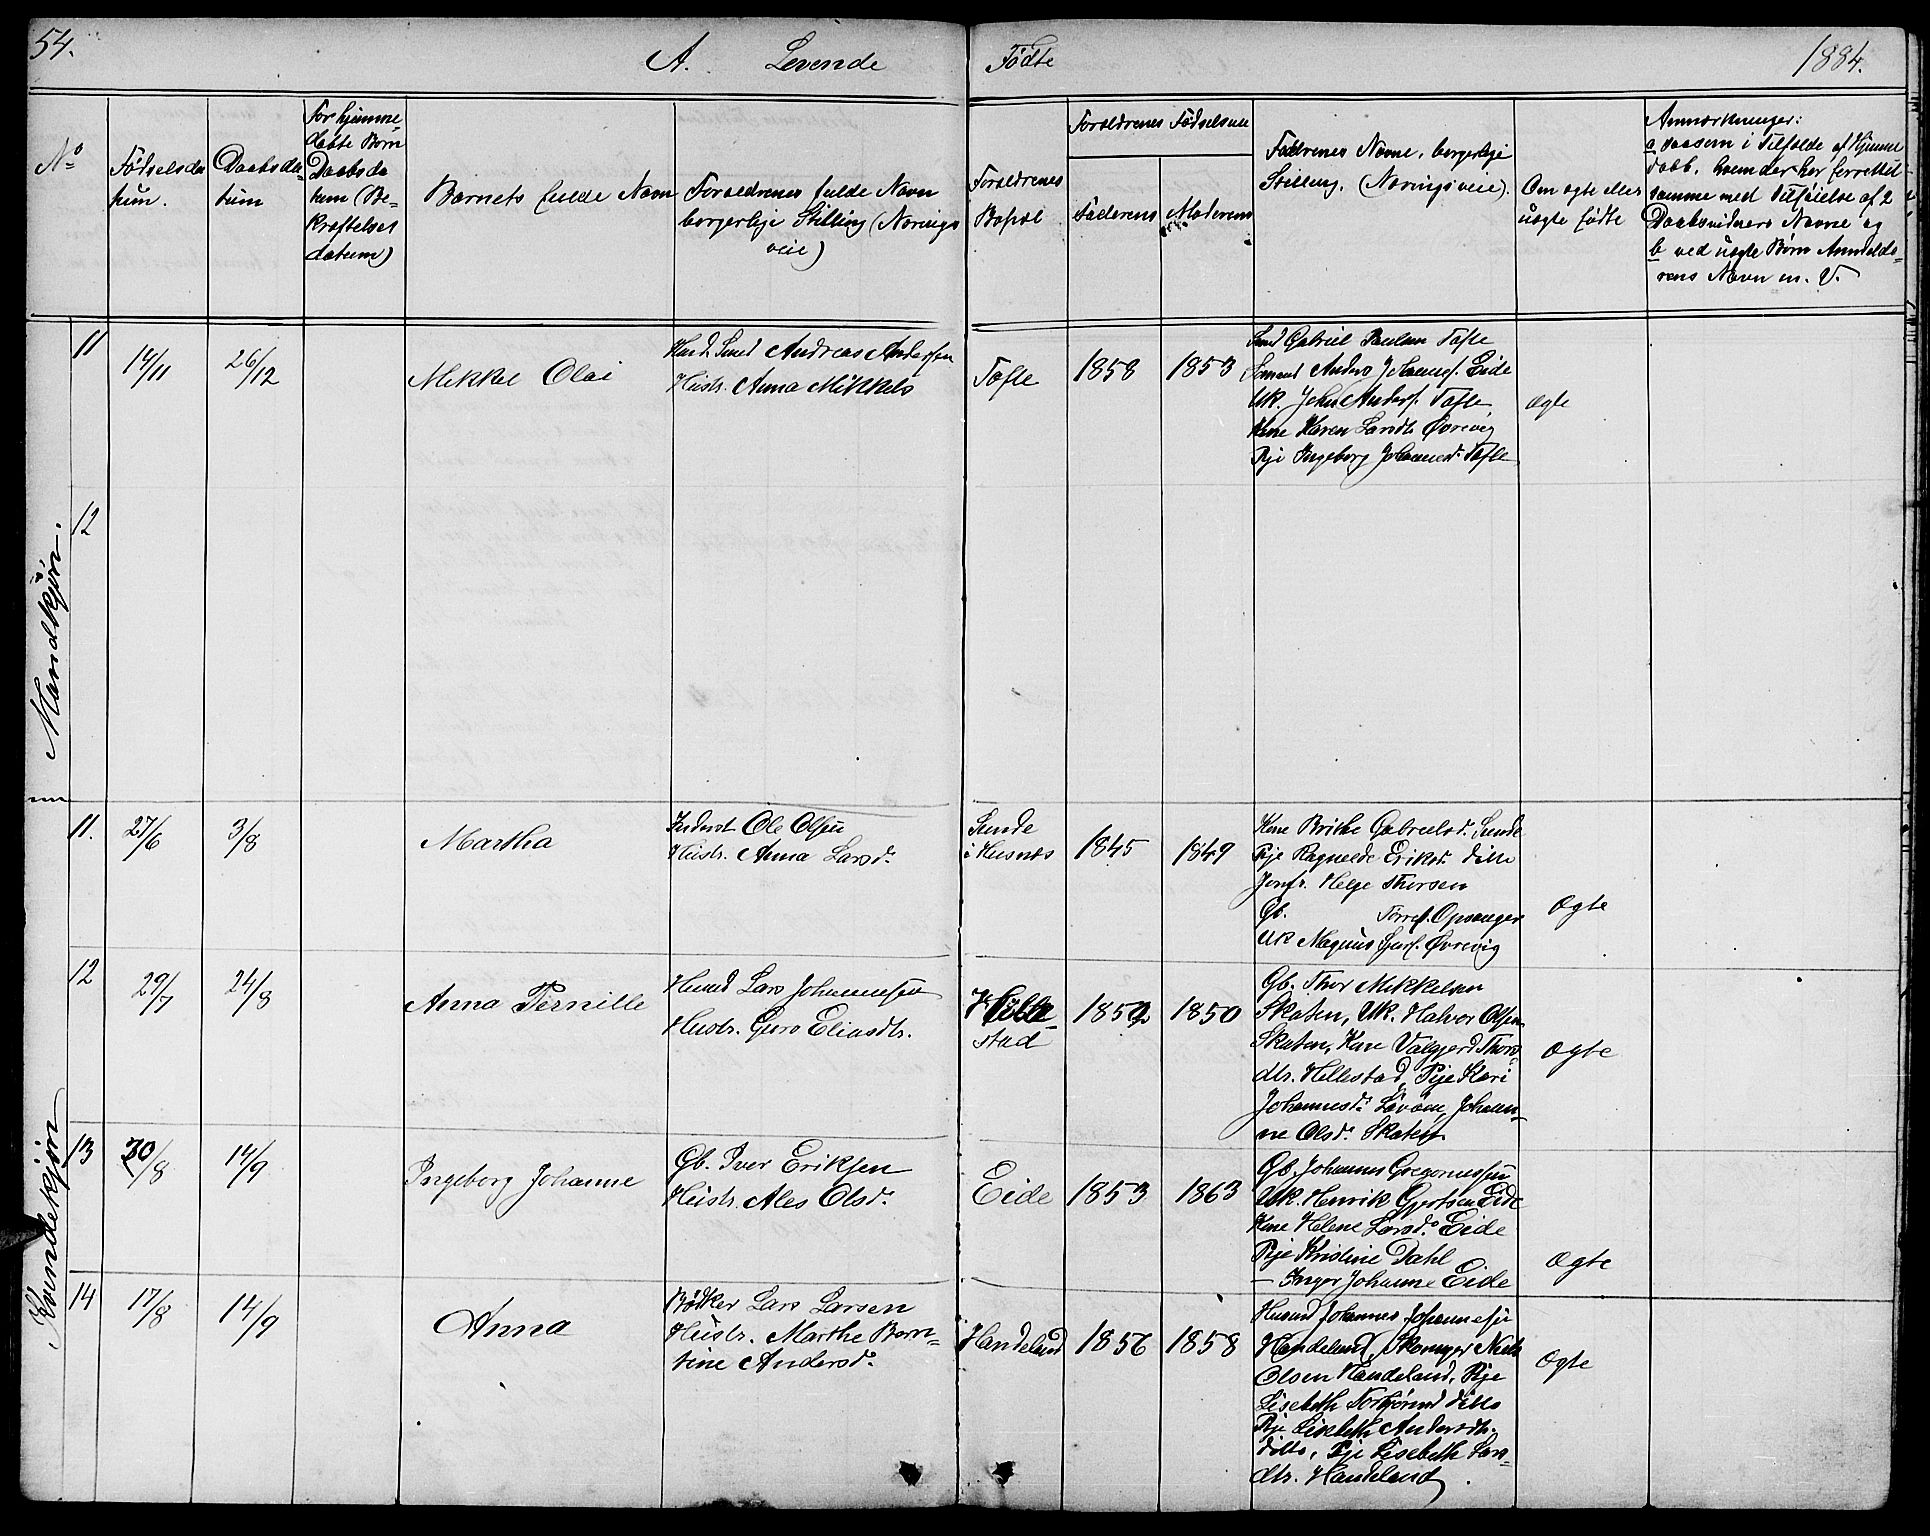 54.
A. Levende Fødte 1884.
No
Fødselsda
tum.
Daabsda-
tum
For hjemme
døbte Børn
Daabsda
tum (Be-
kræftelses
datum)
Barnets fulde Navn
Forældrenes fulde Navn
borgerlige Stilling (Nærings
veie)
Forældrenes
Bopæl
Forældrenes Fødselsaar
Faderens
Moderens
Faddrenes Navne, borgerlige
Stilling, (Næringsveie).
Om ægte eller
uægte fødte
Anmærkninger:
a saasom i Tilfælde af Hjemme
daab, hvem der har forrettet
samme med Tilføielse af 2
Daabsvidners Navne og
b ved uægte Børn Anmelde-
rens Navn m. V.
Mandkjøn.
11
14/11
26/12
Mekkel Olai
Husmd. Smed Andreas Andersen
Hustr. Anna Mikkels
Tofte
1858
1853
Smed Gabriel Paulsen Tofte
Anders Johannes. Eide
Uk. John Anders. Tofte
Kone Karen Larsdtr Øvrevig
Pije Ingeborg Johannesd. Tofte
Ægte
12
Kvindekjøn
11.
27/6
3/8
Martha
Inderst Ole Olsen
Hustr. Anna Larsd.
Sunde
i Husnæs
1845
1849
Kone Brithe Gabrielsd. Sunde
Pije Ragnelde Eriksd. ditto
Jonfr. Helge Thorsen
Gb. Torres. Opsanger
Uk Magnus Sjurs. Øvrevig
Ægte
12
29/7
24/8
Anna Pernille
Husmd Lars Johannesen
Hustr. Guro Eliasdtr.
Helle-
stad
1852
1850
Gb. Thor Mikkelsen
Skaten, Uk. Halvor Olsen
Skaten, Kone Valgjerd Thors
dtr. Hellestad, Pije Kari
Johannesd. Løvøen, Johan-
ne Olsd. Skaten
Ægte
13
20/8
14/9
Ingeborg Johanne
Gb. Iver Eriksen
Hustr. Ales Olsd.
Eide
1853
1863
Gb. Johannes Gregoriussen
Uk. Henrik Gjertsen Eide
Kone Helene Larsd. Eide
Pije Kristine Dahl
— Inger Johanne Eide
Ægte
14
17/8
14/9
Anna
Bødker Lars Larsen
Hustr. Marthe Bern-
tine Andersd.
Handeland
1856
1858
Husmd Johannes Johannesen
Handeland, Skomager Niels
Olsen Handeland, Pije
Lisebeth Torbjørnsd ditto
Pije Lisebeth Andersdtr.
ditto, Pije Lisebeth Lars-
dtr. Handeland.
Ægte